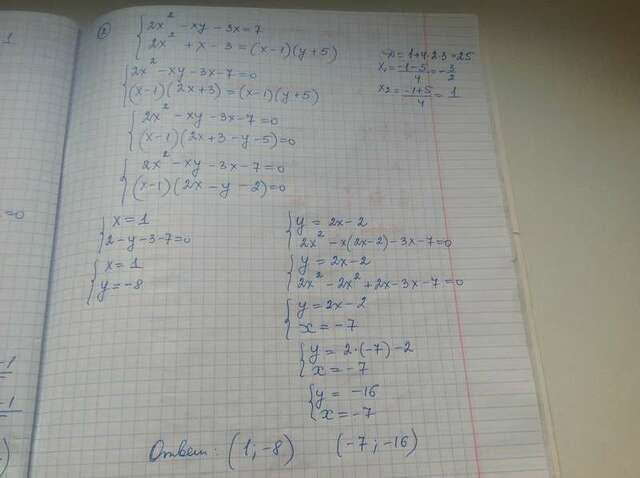 1
②
{2x² - xy - 3x = 7
{2x² + x - 3 = (x-1)(y+5)
D = 1+4·2·3 = 25
x₁ = (-1-5)/4 = -3/2
x₂ = (-1+5)/4 = 1
{2x² - xy - 3x - 7 = 0
{(x-1)(2x+3) = (x-1)(y+5)
{2x² - xy - 3x - 7 = 0
{(x-1)(2x+3-y-5) = 0
{2x² - xy - 3x - 7 = 0
{(x-1)(2x-y-2) = 0
=0
{x = 1
{2-y-3-7=0
{x = 1
{y = -8
{y = 2x-2
{2x² - x(2x-2) - 3x - 7 = 0
{y = 2x-2
{2x² - 2x² + 2x - 3x - 7 = 0
{y = 2x-2
{x = -7
{y = 2·(-7) - 2
{x = -7
{y = -16
{x = -7
-1
-1
)
Ответ: (1; -8) (-7; -16)